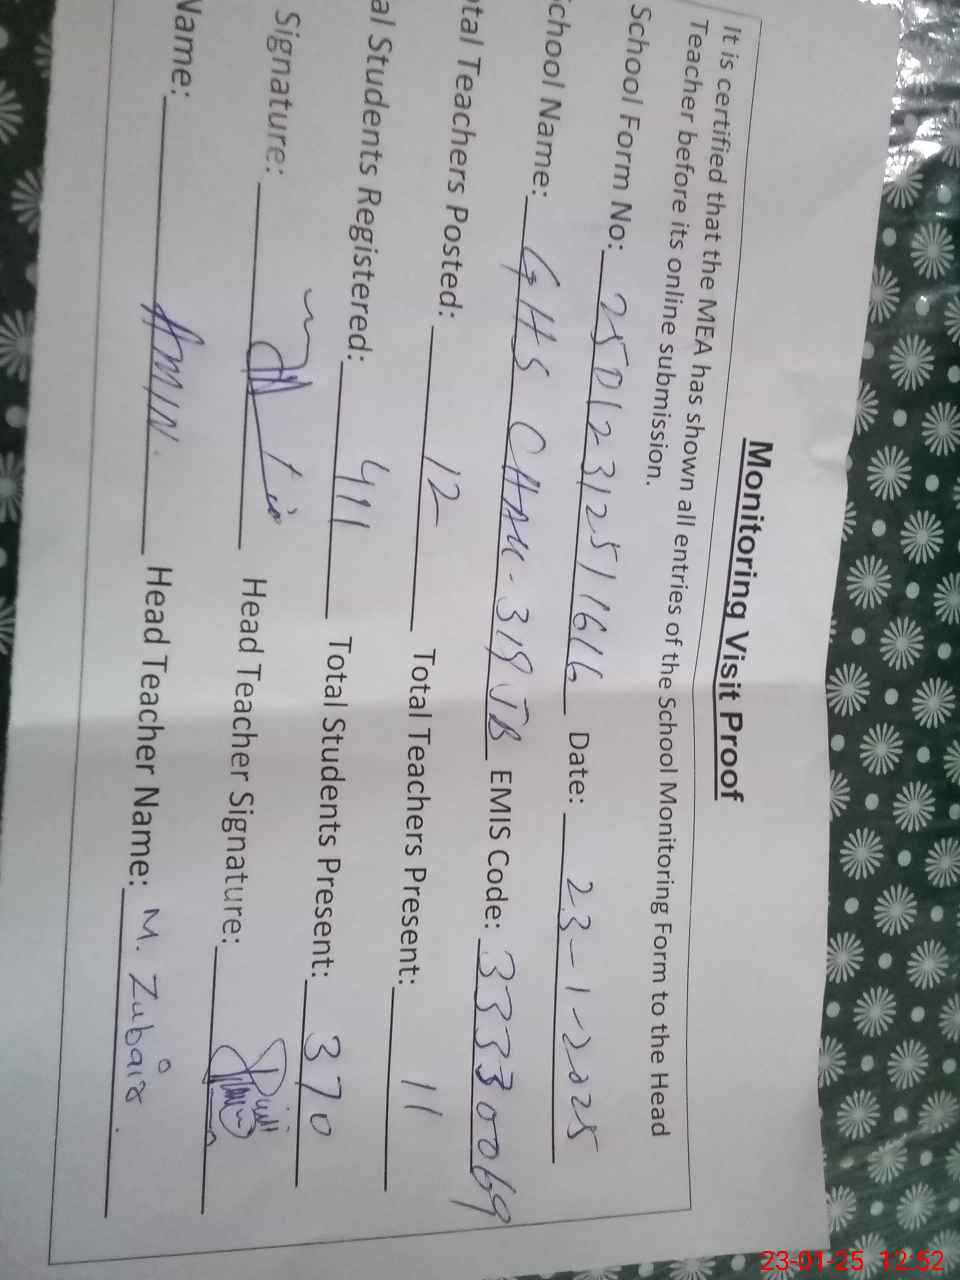 Monitoring Visit Proof
It is certified that the MEA has shown all entries of the School Monitoring Form to the Head
Teacher before its online submission.
School Form No: 25012312511616 Date: 23-1-2025
chool Name: GHS CHAK. 319 JB EMIS Code: 33330069
tal Teachers Posted: 12 Total Teachers Present: 11
al Students Registered: 411 Total Students Present: 370
Signature: Head Teacher Signature:
Name: AMIN. Head Teacher Name: M. Zubair.
23-01-25 12:52